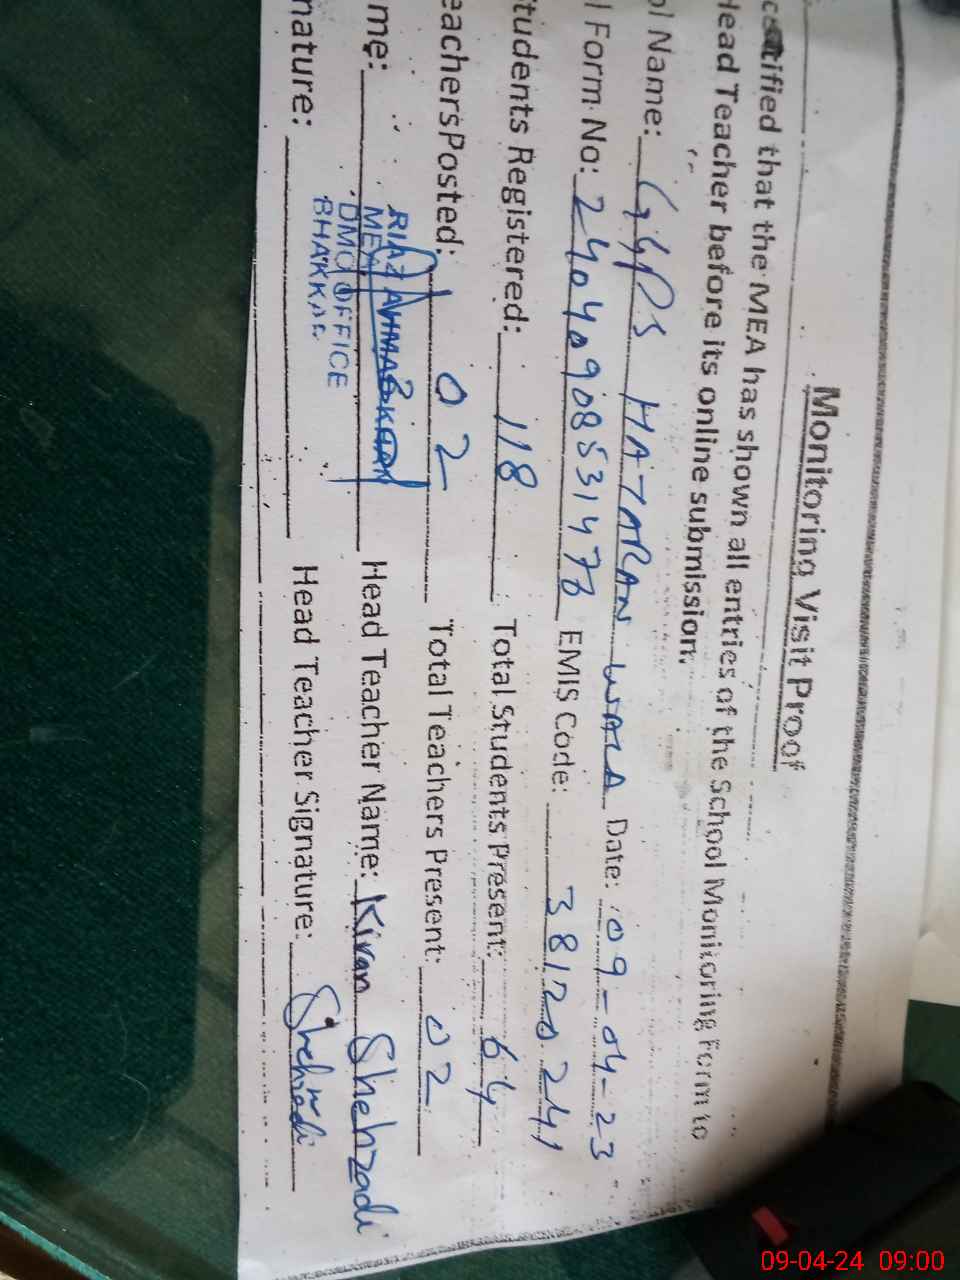 Monitoring Visit Proof
certified that the MEA has shown all entries of the School Monitoring Form to
Head Teacher before its online submission.
ol Name: GGPS HAYARAN WALA Date: 09-04-23
l Form No: 240409085314 EMIS Code: 38120241
Students Registered: 118 Total Students Present: 64
eachersPosted: 02 Total Teachers Present: 02
me: RIAZ AHMAD KHAN Head Teacher Name: Kiran Shehzadi
MEA
DMO OFFICE
BHAKKAR
nature: Head Teacher Signature: Shehzadi
09-04-24 09:00